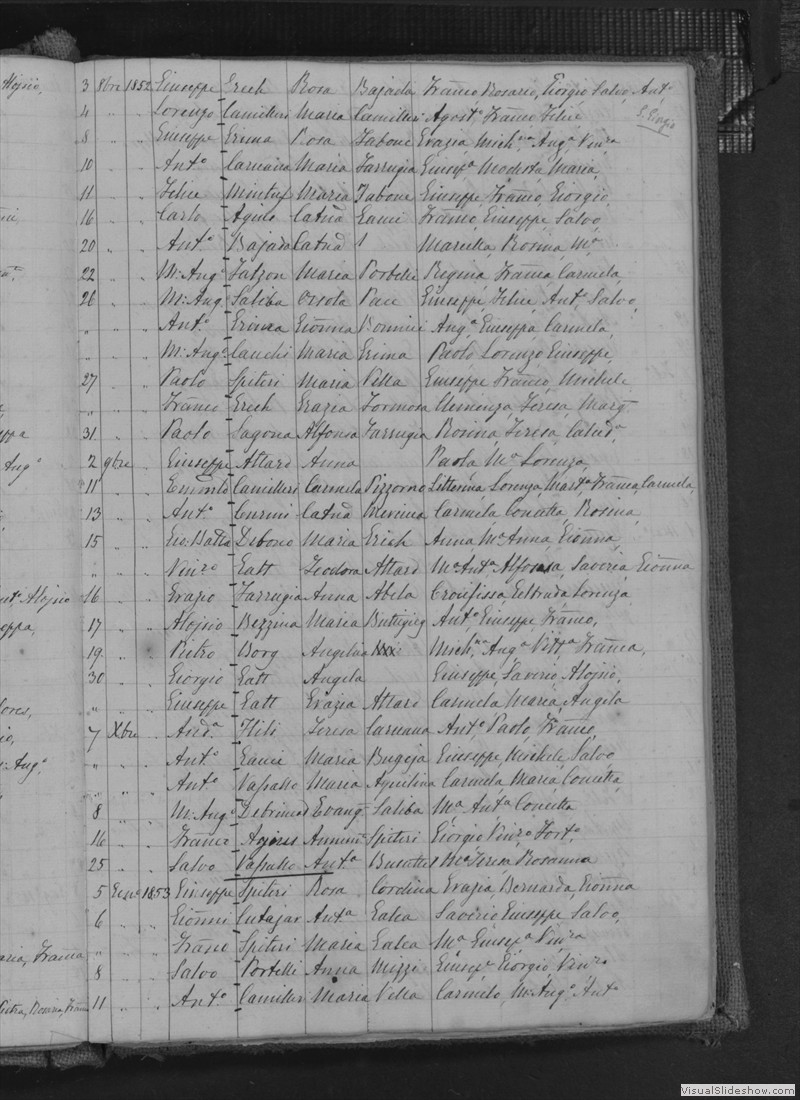 Alojsio,
3 8bre 1852 Giuseppe Grech Rosa Bajada Franco Rosario, Giorgio Salvo Anto
4 " " Lorenzo Camilleri Maria Camilleri Agosto Franco Felice
S. Grazio
8 " " Giuseppe Erima Rosa Zabone Grazia, Michna Anga Vinza
10 " " Anto Caruana Maria Farrugia Giusepa Modesta Maria,
11 " " Felice Mintuf Maria Zabone Giuseppe, Franco, Giorgio,
16 " " Carlo Agule Catna Gauci Franco, Giuseppe Salvo,
20 " " Anto Bajada Catna Rosina Ma
22 " " M: Ango Falzon Maria Portelli Regina Franca Carmela,
26 " " M: Ang Saliba Orsola Pace Giuseppe, Felice, Anto Salvo,
" " " Anto Erima Gionna Bonnici Anga Giuseppa Carmela,
" " M: Ango Cauchi Maria Erima Paolo Lorenzo Giuseppe,
27 " " Paolo Spiteri Maria Vella Giuseppe Franco, Michele
" " " Franco Grech Grazia Formosa Clemenza, Teresa, Marg
31 " " Paolo Sagona Alfonsa Farrugia Rosina, Teresa, Catda
2 9bre " Giuseppe Attard Anna Paola Ma Lorenza,
11 " " Camilleri Carmela Pizzorno Litterina, Lorenza, Marta Franca, Carmela,
13 " " Anto Curmi Catna Mercieca Carmela Concetta Rosina
15 " " Gio: Batta Debono Maria Grech Anna Ma Anna, Gionna,
" " " Vinzo Gatt Teodora Attard Ma Anta Alfonsa, Saveria, Gionna
16 " " Grazio Farrugia Anna Abela Crocifissa, Geltruda Lorenza
17 " " Alojsio Bezzina Maria Buttigieg Anto Giuseppe Franco,
19 " " Pietro Borg Angelica Michna Anga Vittа Franca,
30 " " Giorgio Gatt Angela Giuseppe, Saverio, Alojsio,
" " " Giuseppe Gatt Grazia Attard Carmela Maria, Angela
7 Xbre " Anda Fliti Teresa Caruana Anto Paolo, Franco,
" " " Anto Gauci Maria Bugeja Giuseppe, Michele Salvo,
" " " Anto Vassallo Maria Aquilina Carmela, Maria, Concetta,
8 " " M: Ango Debrincat Evang Saliba Ma Anta Concetta
16 " " Franco Agius Annun Spiteri Giorgio Vinzo Forto
25 " " Salvo Vassallo Anta Busuttil Ma Teresa Rosanna
5 Geno 1853 Giuseppe Spiteri Rosa Cordina Grazia, Bernarda, Gionna
6 " " Gionni Cutajar Anta Galea Saverio Giuseppe Salvo,
" " " Franco Spiteri Maria Galea Ma Giusepa Vinza
8 " " Salvo Portelli Anna Mizzi Giusepe Giorgio, Vinzo
11 " " Anto Camilleri Maria Vella Carmelo, M: Ango Anto